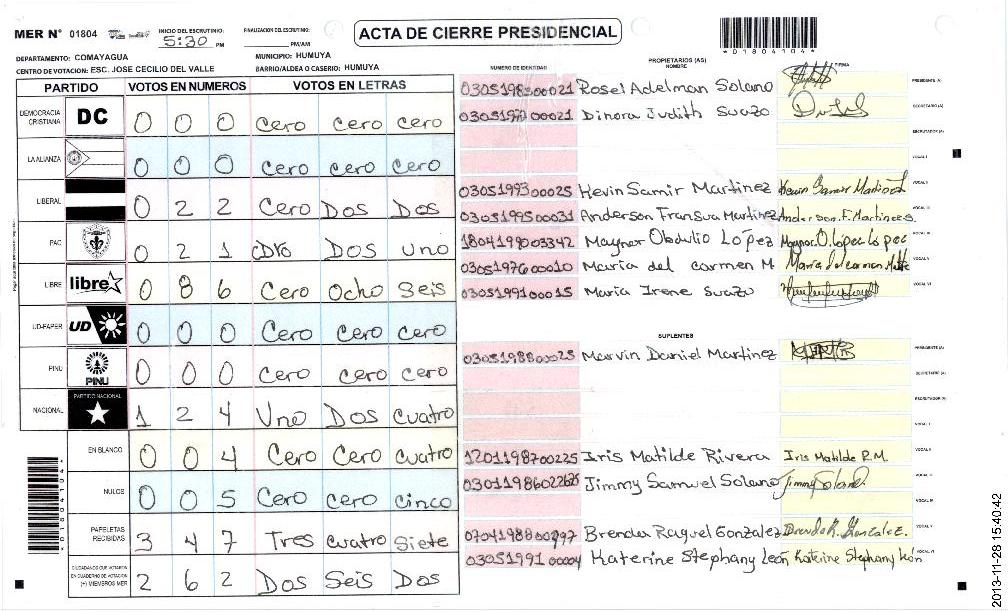 MER N° 01804
INICIO DEL ESCRUTINIO:
5:30 PM
FINALIZACION DEL ESCRUTINIO:
PM/AM
ACTA DE CIERRE PRESIDENCIAL
*01804104*
DEPARTAMENTO: COMAYAGUA
MUNICIPIO: HUMUYA
CENTRO DE VOTACION: ESC. JOSE CECILIO DEL VALLE
BARRIO/ALDEA O CASERIO: HUMUYA
PARTIDO VOTOS EN NUMEROS VOTOS EN LETRAS
DEMOCRACIA CRISTIANA DC 0 0 0 Cero cero cero
LA ALIANZA 0 0 0 Cero cero cero
LIBERAL 0 2 2 Cero Dos Dos
PAC 0 2 1 DOS uno
LIBRE libre 0 8 6 Cero Ocho seis
UD-FAPER UD 0 0 0 Cero Cero cero
PINU PINU 0 0 0 Cero cero cero
NACIONAL PARTIDO NACIONAL 1 2 4 Uno Dos cuatro
EN BLANCO 0 0 4 Cero Cero cuatro
NULOS 0 0 5 Cero cero cinco
PAPELETAS RECIBIDAS 3 4 7 Tres cuatro siete
CIUDADANOS QUE VOTARON EN CUADERNO DE VOTACION (+) MIEMBROS MER 2 6 2 Dos Seis Dos
*01804104*
NUMERO DE IDENTIDAD PROPIETARIOS (AS) NOMBRE FIRMA
Rosel Adelman Solano PRESIDENTE (A)
Dinora Judith Suazo SECRETARIO (A)
ESCRUTADOR (A)
VOCAL I
0305199300025 Kevin Samir Martinez Kevin Samir Martinez VOCAL II
0305199500031 Anderson Martinez Anderson. F. Martinez S. VOCAL III
1804199003342 Maynor Obdulio López Maynor. O. López López
0305197600010 Maria del carmen M Maria del carmen VOCAL V
0305199100015 Maria Irene Suazo VOCAL VI
SUPLENTES
0305198800025 Marvin Daniel Martinez PRESIDENTE (A)
SECRETARIO (A)
ESCRUTADOR (A)
VOCAL I
1201198700225 Iris Matilde Rivera Iris Matilde R.M.
Jimmy Samuel Solano Jimmy Solano
Brenda Raquel Gonzalez Gonzalez. VOCAL V
0305199100004 Katerine Stephany Leon Katerine Stephany León VOCAL VI
2013-11-28 15:40:42